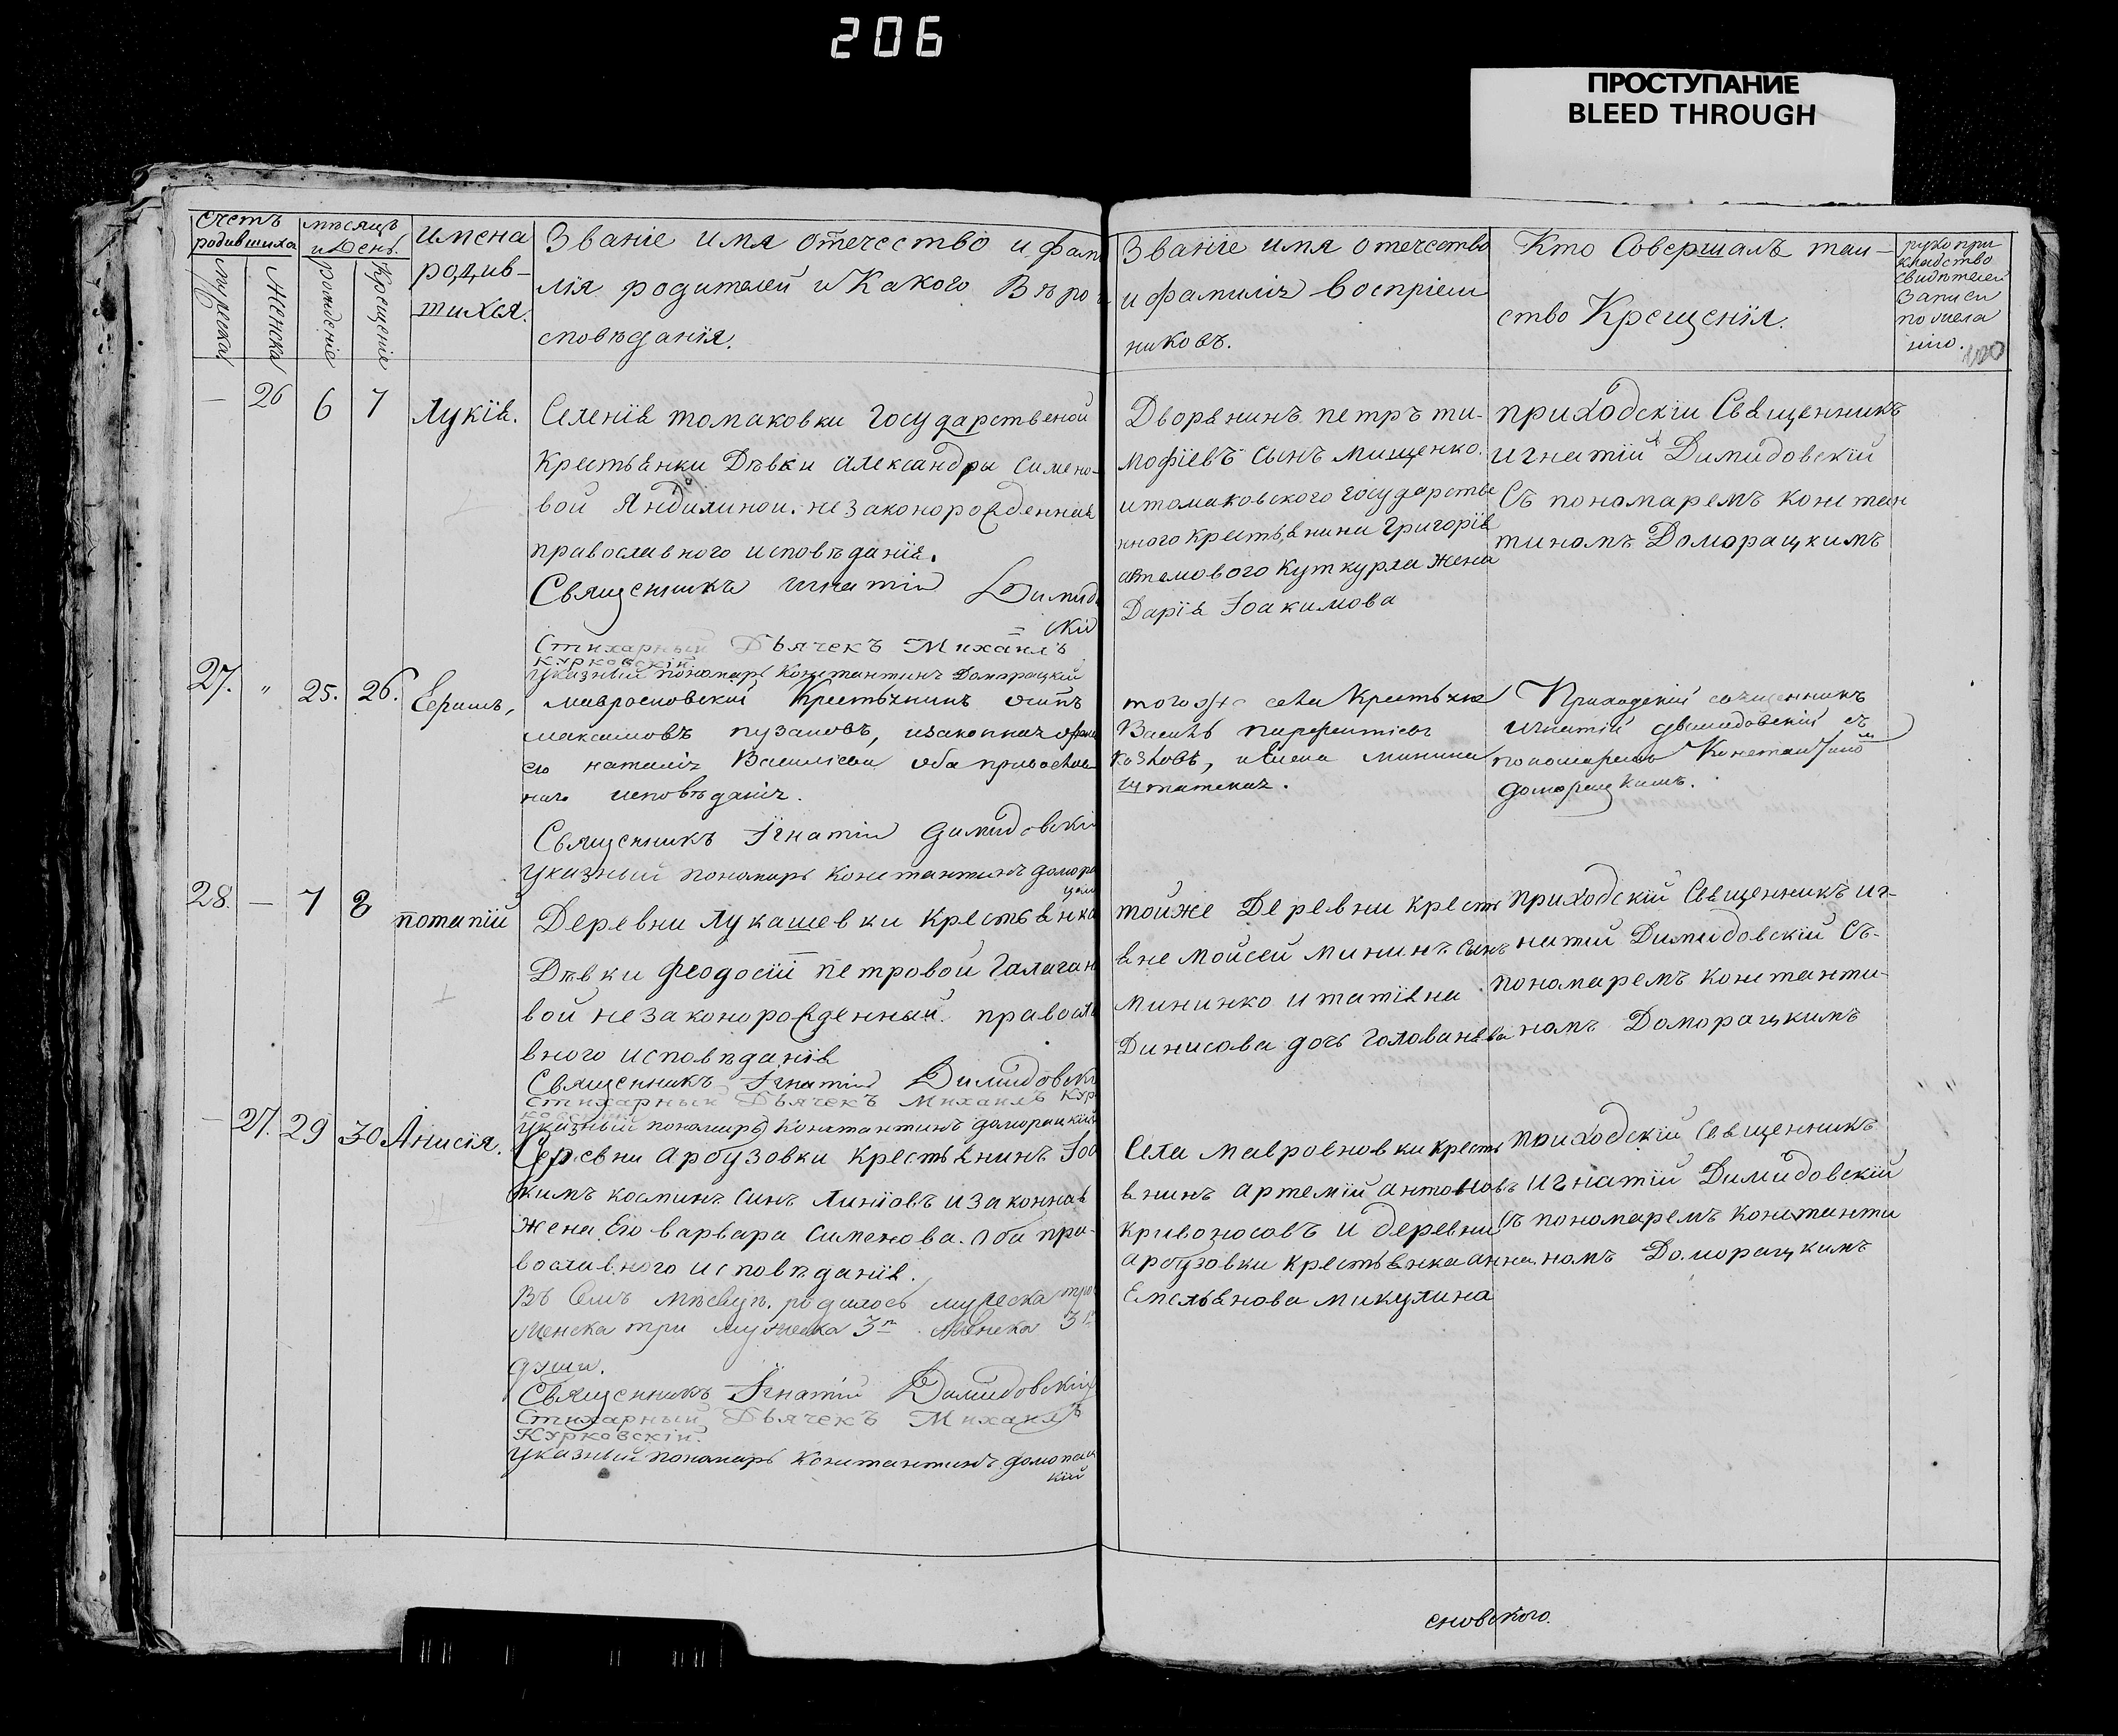 206
ПРОСТУПАНИЕ
BLEED THROUGH
Счетъ родившиха
мѣсяцъ и День.
имена родив-шихся.
Званіе имя отечество и фам
лія родителей и Какого Вѣро
споведанія.
Званіе имя отечество
и фамилія воспріем
никовъ.
Кто Совершалъ таи-
ство Крещенія.
руко при
кладство
свидѣтелей
записи
по жела
нію.
мужеска
женска
рожденіе
Крещеніе
— 26 6 7 Лукія.
Селенія томаковки государственой
крестьянки Дѣвки александры симено-
вой незаконорожденная
православного исповѣданія.
Священникъ игнатій Димидо
=скій
Стихарный Дьячекъ Михаилъ
Курковскій
Указный пономарь Константинъ Доморацкій
Дворянинъ петръ ти-
мофіевъ сынъ мищенко.
итомаковского государстве
нного крестьянина григорія
жена
Дарія Іоакимова
приходскій Священникъ
игнатій Димидовскій
Съ пономаремъ констан
тиномъ Доморацкимъ
27. " 25. 26. Ефимъ,
Крестьянинъ осипъ
максимовъ пузановъ, изаконная жена
его наталія Василіева оба православ
наго исповѣданія.
Священникъ Ігнатій Димидовскій
Указный пономарь Константинъ домора
цкій
тогожъ села Крестьяне
козловъ, иЕлена минина
Приходскій священникъ
игнатій Димидовскій съ
пономаремъ Константино
мъ
доморацкимъ.
28. — 7 8 потапій
Деревни Лукашевки крестьянка
Дѣвки Феодосіи петровой Галаган
вой незаконорожденный. правосла
вного исповѣданія
Священникъ Ігнатій Димидовскі
Стихарный Дьячекъ Михаилъ Кур
ковскій
Указный пономарь Константинъ доморацкій
тойже Деревни крестъ
яне Мойсей мининъ сынъ
мининко и татіяна
Динисова дочь голованева
приходскій Священникъ иг-
натій Димидовскій Съ-
пономаремъ константи-
номъ Доморацкимъ
— 27. 29 30 Анисія.
Деревни арбузовки крестьянинъ Іоа
кимъ косминъ синъ Линіовъ изаконная
жена Его варвара Сименова. оба пра-
вославного исповѣданія.
Въ семъ мѣсецѣ. родилось мужеска три
женска три мужеска 3 женска 3
души.
Священникъ Ігнатій Димидовскій
Стихарный Дьячекъ Михаилъ
Курковскій.
Указный пономарь Константинъ доморац
кій
Села мавровновки крестъ
янинъ артемій антоновъ
кривоносовъ и деревни
арбузовки крестьянка анна
Емельянова микулина
приходскій Священникъ
игнатій Димидовскій
съ пономаремъ константи
номъ Доморацкимъ
сновского.